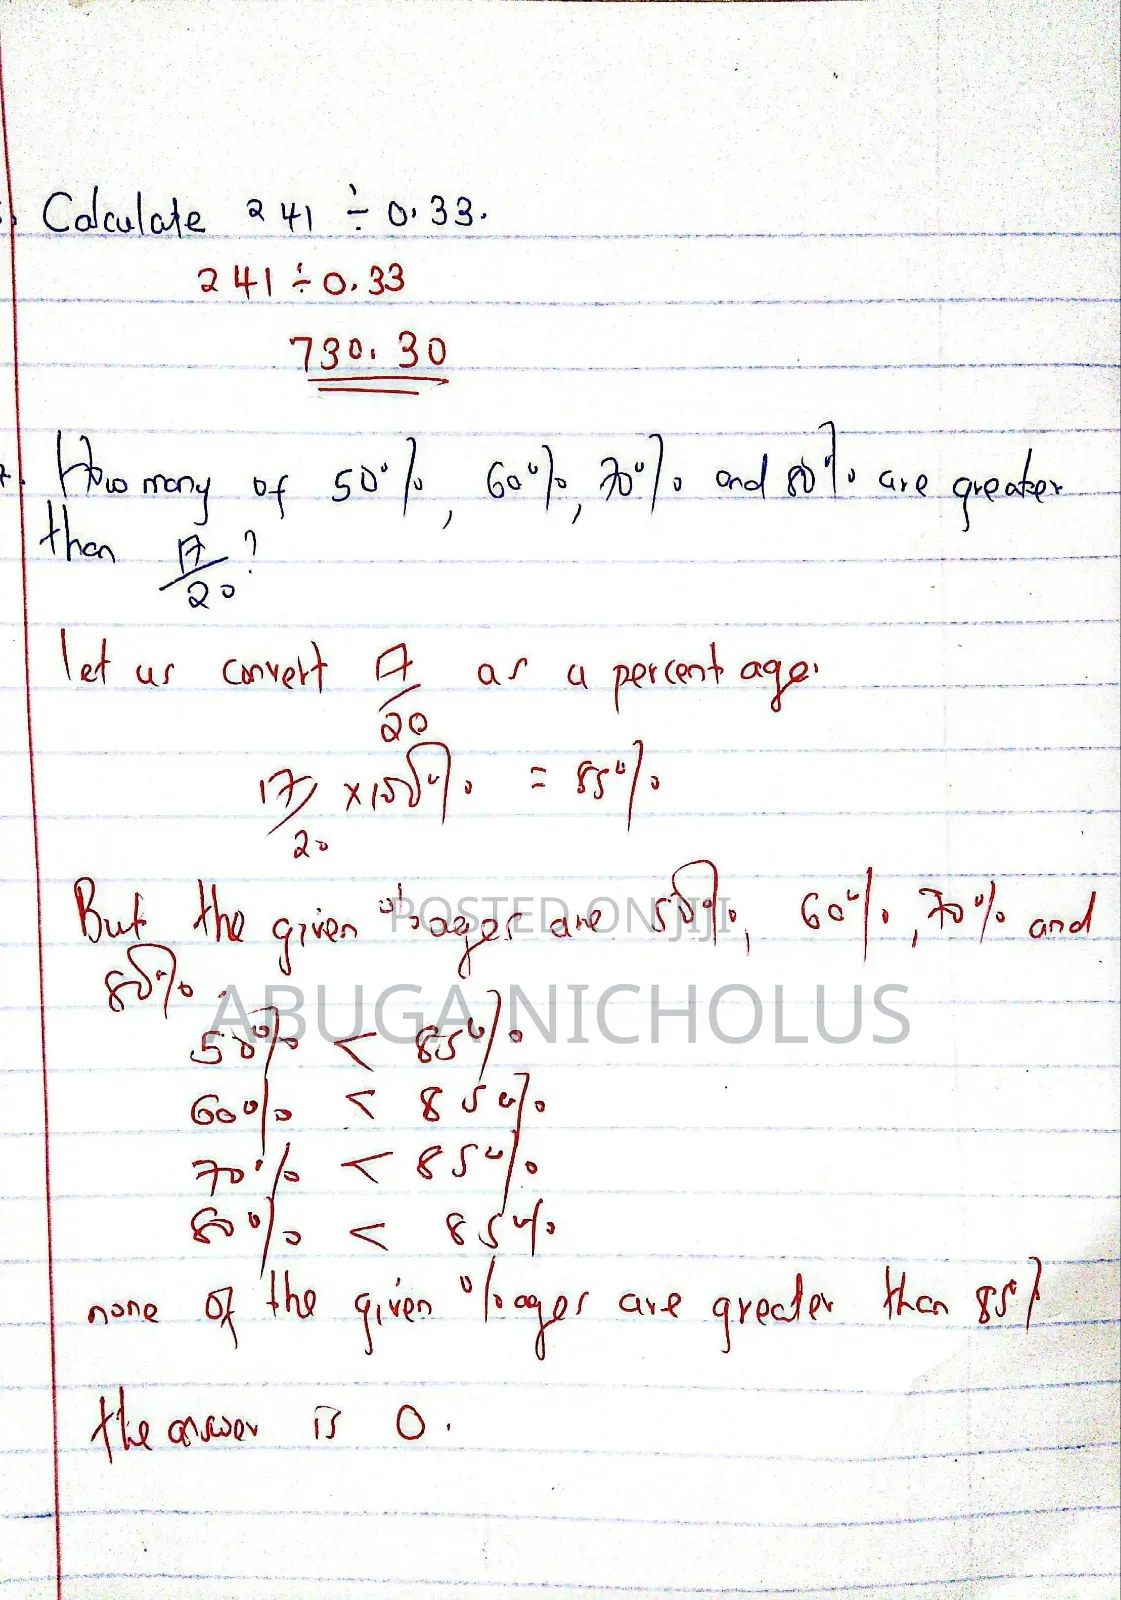 Calculate 241 ÷ 0.33.
241 ÷ 0.33
730.30
7. How many of 50%, 60%, 70% and 80% are greater
than 17/20?
let us convert 17/20 as a percentage.
17/20 x100% = 85%
But the given %ages are 50%, 60%, 70% and
80%.
POSTED ON JIJI
ABUGA NICHOLUS
50% < 85%
60% < 85%
70% < 85%
80% < 85%
none of the given %ages are greater than 85%
the answer is 0.